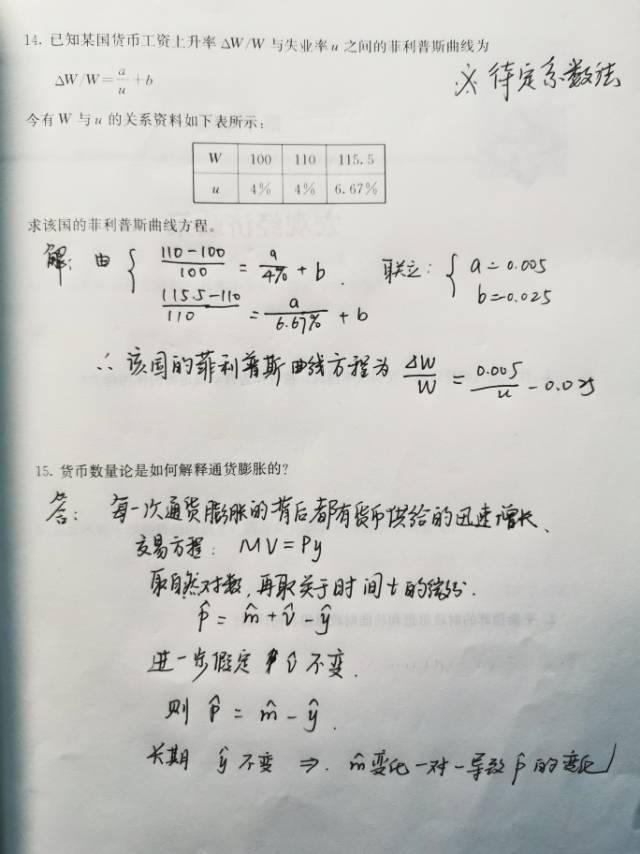 14. 已知某国货币工资上升率 ΔW/W 与失业率 u 之间的菲利普斯曲线为
ΔW/W=a/u+b
※ 待定系数法
今有 W 与 u 的关系资料如下表所示：
W 100 110 115.5
u 4% 4% 6.67%
求该国的菲利普斯曲线方程。
解：由 { (110-100)/100 = a/4% + b . 联立：{ a=0.005
(115.5-110)/110 = a/6.67% + b b=-0.025
∴ 该国的菲利普斯曲线方程为 ΔW/W = 0.005/u - 0.025
15. 货币数量论是如何解释通货膨胀的?
答：每一次通货膨胀的背后都有货币供给的迅速增长、
交易方程：MV=Py
取自然对数，再取关于时间t的微分.
p̂ = m̂ + v̂ - ŷ
进一步假定 v̂ 不变.
则 p̂ = m̂ - ŷ .
长期 ŷ 不变 ⇒. m̂变化一对一导致 p̂ 的变化